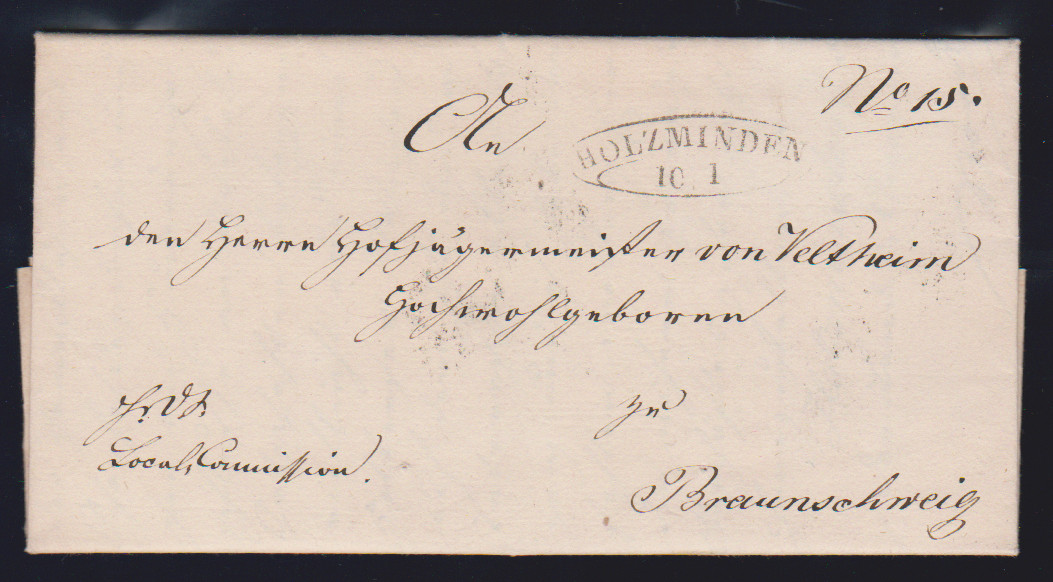 No 15.
An
HOLZMINDEN
10 1
den Herrn Hofjägermeister von Veltheim
Hochwohlgeboren
zu
Local, Commission.
Braunschweig